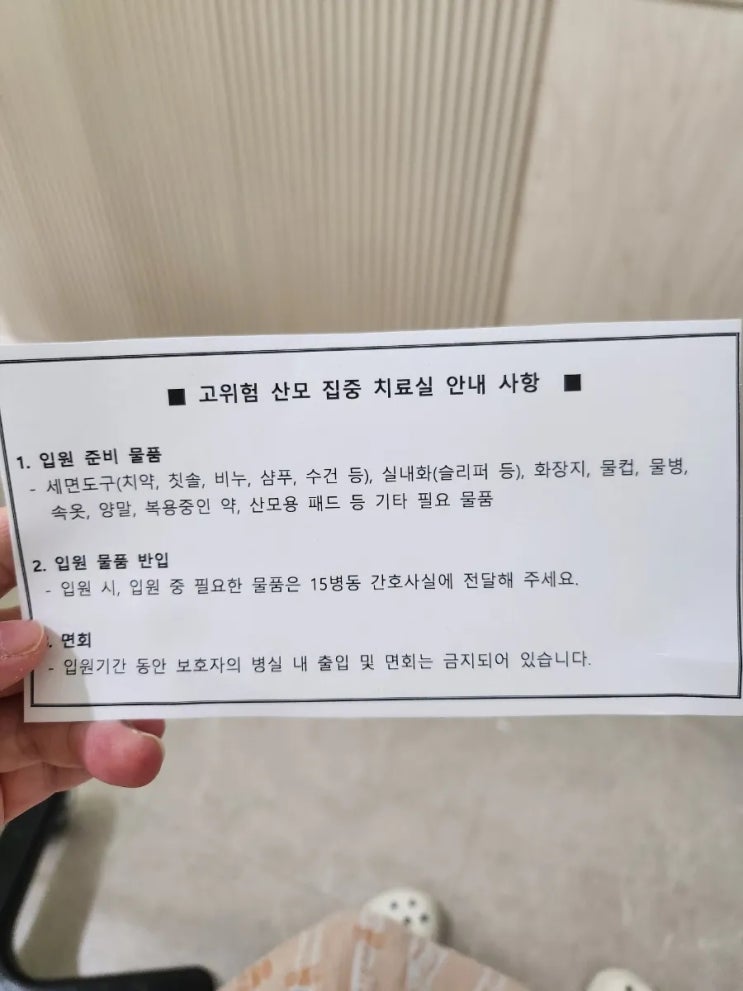 ■ 고위험 산모 집중 치료실 안내 사항 ■
1. 입원 준비 물품
- 세면도구(치약, 칫솔, 비누, 샴푸, 수건 등), 실내화(슬리퍼 등), 화장지, 물컵, 물병,
속옷, 양말, 복용중인 약, 산모용 패드 등 기타 필요 물품
2. 입원 물품 반입
- 입원 시, 입원 중 필요한 물품은 15병동 간호사실에 전달해 주세요.
면회
- 입원기간 동안 보호자의 병실 내 출입 및 면회는 금지되어 있습니다.